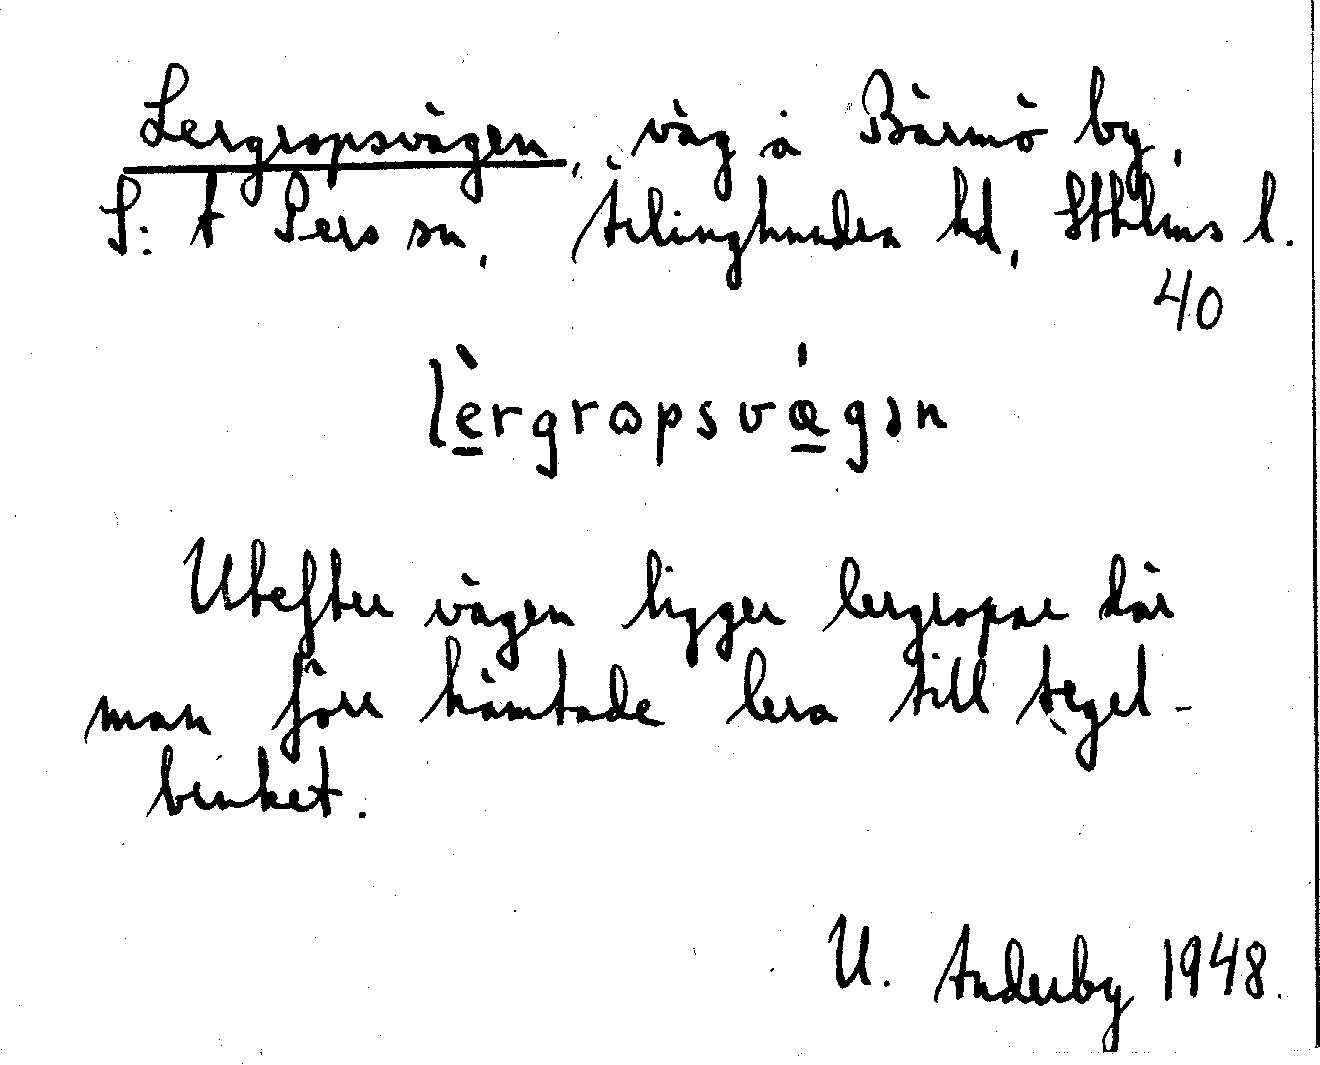 Lergropsvägen, väg å Bärmö by,
S:t Pers sn, Ärlinghundra hd, Sthlms l.
40
lèrgropsvægən
Utefter vägen ligger lergropar där
man förr hämtade lera till tegel-
bruket.
U. Anderby 1948.